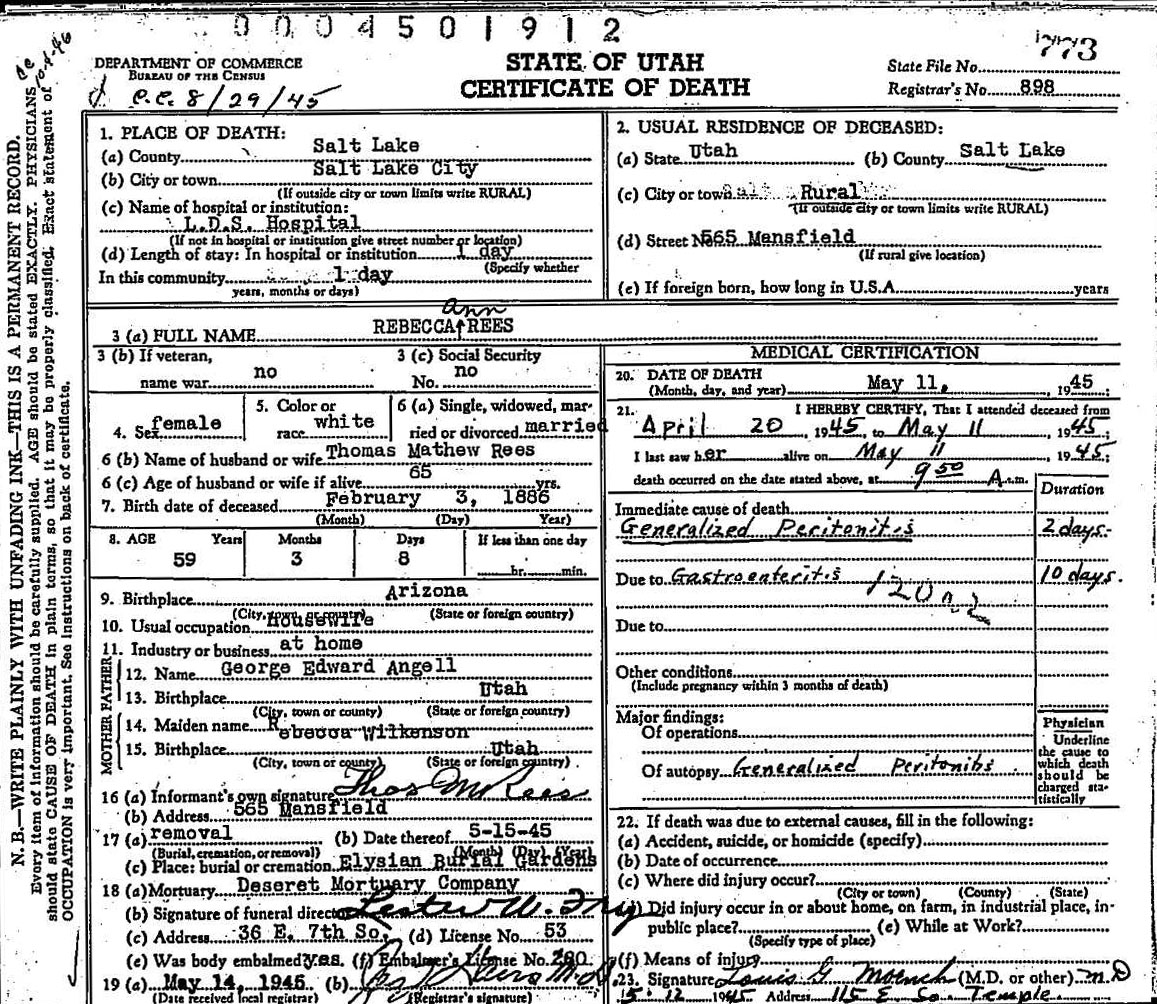 0004501912
DEPARTMENT OF COMMERCE
BUREAU OF THE CENSUS
c.c. 8/29/45
STATE OF UTAH
CERTIFICATE OF DEATH
State File No. 773
Registrar's No. 898
N. B.—WRITE PLAINLY WITH UNFADING INK—THIS IS A PERMANENT RECORD.
Every item of information should be carefully supplied. AGE should be stated EXACTLY. PHYSICIANS
should state CAUSE OF DEATH in plain terms, so that it may be properly classified. Exact statement of
OCCUPATION is very important. See instructions on back of certificate.
1. PLACE OF DEATH:
(a) County Salt Lake
(b) City or town Salt Lake City
(If outside city or town limits write RURAL)
(c) Name of hospital or institution:
L.D.S. Hospital
(If not in hospital or institution give street number or location)
(d) Length of stay: In hospital or institution 1 day
(Specify whether
In this community 1 day
years, months or days)
2. USUAL RESIDENCE OF DECEASED:
(a) State Utah (b) County Salt Lake
(c) City or town Rural
(If outside city or town limits write RURAL)
(d) Street No 565 Mansfield
(If rural give location)
(e) If foreign born, how long in U.S.A. years
ann
3 (a) FULL NAME REBECCA REES
3 (b) If veteran,
name war no
3 (c) Social Security
No. no
4. Sex female
5. Color or
race white
6 (a) Single, widowed, mar-
ried or divorced married
6 (b) Name of husband or wife Thomas Mathew Rees
6 (c) Age of husband or wife if alive 65 yrs.
7. Birth date of deceased February 3, 1886
(Month) (Day) Year)
8. AGE Years Months Days If less than one day
59 3 8 hr. min.
9. Birthplace Arizona
(City, town, or county) (State or foreign country)
10. Usual occupation Housewife
11. Industry or business at home
FATHER
12. Name George Edward Angell
13. Birthplace Utah
(City, town or county) (State or foreign country)
MOTHER
14. Maiden name Rebecca Wilkenson
15. Birthplace Utah
(City, town or county) (State or foreign country)
16 (a) Informant's own signature Thos M Rees
(b) Address 565 Mansfield
17 (a) removal (b) Date thereof 5-15-45
(Burial, cremation, or removal) (Month) (Day) (Year)
(c) Place: burial or cremation Elysian Burial Gardens
18 (a) Mortuary Deseret Mortuary Company
(b) Signature of funeral director Lester W.
(c) Address 36 E. 7th So. (d) License No. 53
(e) Was body embalmed yes (f) Embalmer's License No. 280
19 (a) May 14, 1945 (b)
(Date received local registrar) (Registrar's signature)
MEDICAL CERTIFICATION
20. DATE OF DEATH
(Month, day, and year) May 11, 1945
21. I HEREBY CERTIFY, That I attended deceased from
April 20, 1945, to May 11, 1945;
I last saw her alive on May 11, 1945;
death occurred on the date stated above, at 9 50 A. m.
Duration
Immediate cause of death
Generalized Peritonitis 2 days.
Due to Gastroenteritis 10 days.
Due to
Other conditions
(Include pregnancy within 3 months of death)
Major findings:
Of operations
Of autopsy Generalized Peritonitis
Physician
Underline
the cause to
which death
should be
charged sta-
tistically
22. If death was due to external causes, fill in the following:
(a) Accident, suicide, or homicide (specify)
(b) Date of occurrence
(c) Where did injury occur?
(City or town) (County) (State)
Did injury occur in or about home, on farm, in industrial place, in-
public place? (e) While at Work?
(Specify type of place)
(f) Means of injury
23. Signature Louis G. Moench (M.D. or other) M D
5 12 1945 Address 115 E. So. Temple